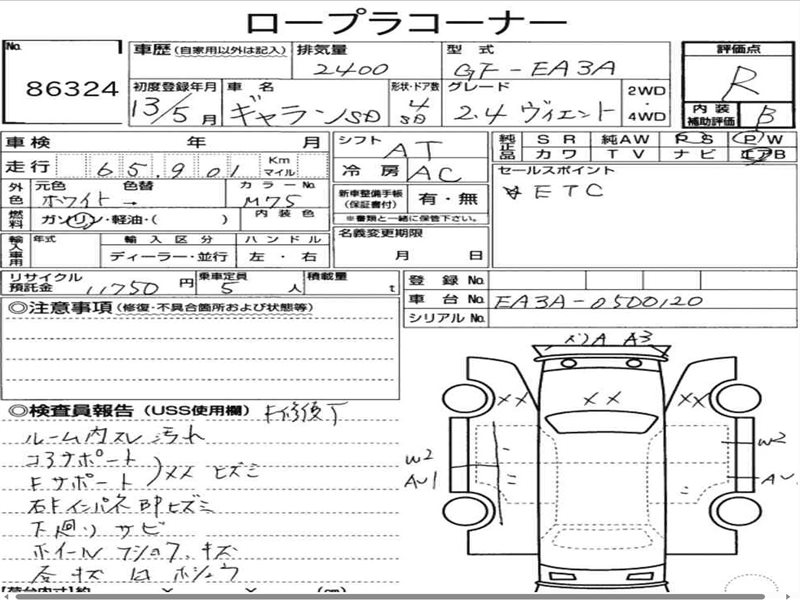 ロープラコーナー
No.
86324
車歴 (自家用以外は記入)
排気量
2400
型式
GF-EA3A
評価点
R
内装
補助評価
B
初度登録年月
13/5月
車名
ギャランSD
形状・ドア数
4
SD
グレード
2.4 ヴィエント
2WD
・
4WD
車検 年 月
走行 65,901 Km
マイル
外色
元色
ホワイト
色替
→
カラーNo.
M75
燃料
ガソリン・軽油・( )
内装色
輸入車用
年式
輸入区分
ディーラー・並行
ハンドル
左・右
リサイクル
預託金
11750 円
乗車定員
5 人
積載量
t
シフト
AT
冷房
AC
新車整備手帳
(保証書付)
有・無
※書類と一緒に保管下さい。
名義変更期限
月 日
純正品
SR 純AW PS PW
カワ TV ナビ エアB
セールスポイント
ETC
登録No.
車台No. EA3A-0500120
シリアルNo.
◎注意事項(修復・不具合箇所および状態等)
◎検査員報告(USS使用欄)
ルーム内スレ 汚れ
コアサポート
Fサポート
メメ ヒズミ
右Fインパネ部ヒズミ
下廻りサビ
ホイール
キズ
A3
XX
XX
XX
W2
W2